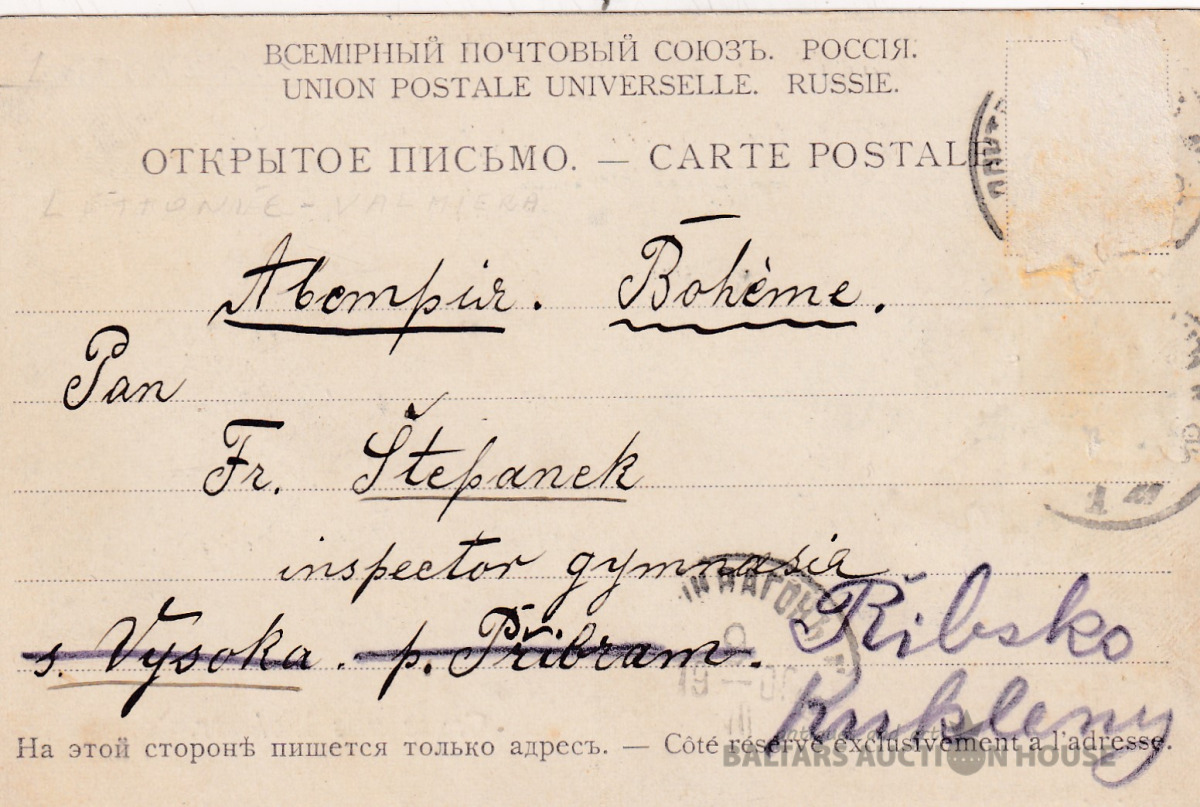 ВСЕМІРНЫЙ ПОЧТОВЫЙ СОЮЗЪ. РОССІЯ.
UNION POSTALE UNIVERSELLE. RUSSIE.
ОТКРЫТОЕ ПИСЬМО. — CARTE POSTALE
LETTONIE - VALMIERA
Bohème.
Pan
Fr. Štěpanek
inspector gymnasia
s. Vysoka. p. Přibram.
Řibsko
Kukleny
На этой сторонѣ пишется только адресъ. — Côté réservé exclusivement a l'adresse.
BALTARS AUCTION HOUSE